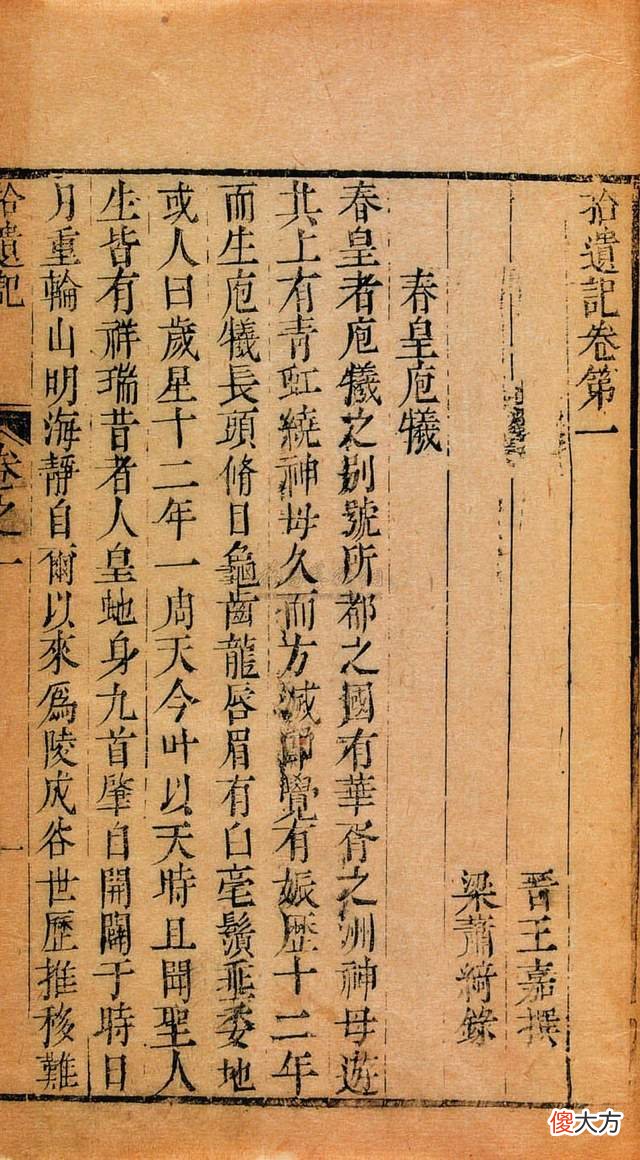 拾遺記卷第一
晉王嘉撰
梁蕭綺錄
春皇庖犧
春皇者庖犧之別號所都之國有華胥之洲神母遊
其上有青虹繞神母久而方滅即覺有娠歷十二年
而生庖犧長頭脩目龜齒龍唇眉有白毫鬚垂委地
或人曰歲星十二年一周天今叶以天時且聞聖人
生皆有祥瑞昔者人皇虵身九首肇自開闢于時日
月重輪山明海靜自爾以來爲陵成谷世歷推移難
拾遺記
卷之一
一
傻大方